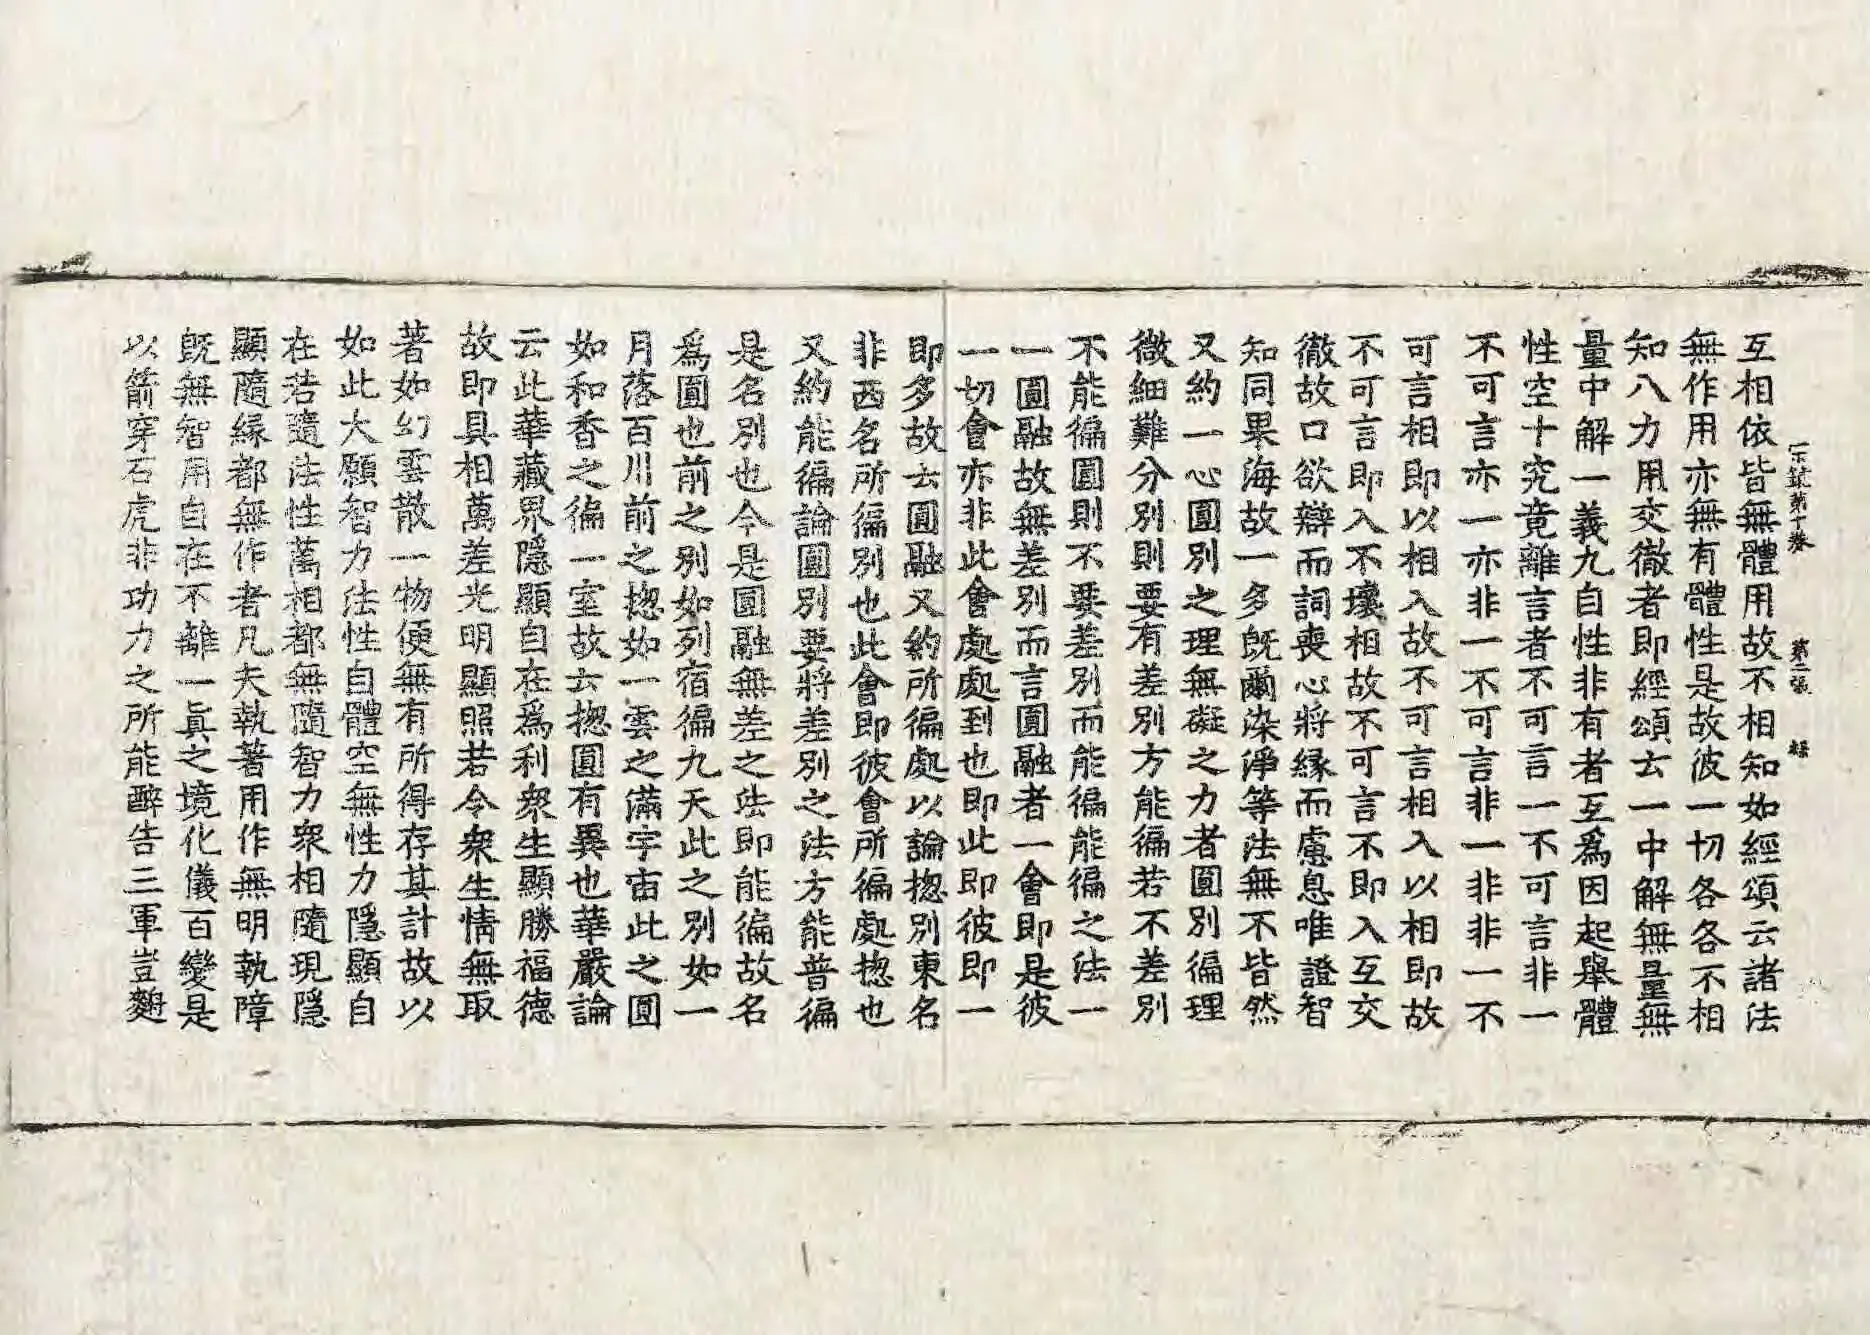 互相依皆無體用故不相知如經頌云諸法
宗鏡第十卷 第二張 緑
無作用亦無有體性是故彼一切各各不相
知八力用交徹者即經頌云一中解無量無
量中解一義九自性非有者互爲因起舉體
性空十究竟離言者不可言一不可言非一
不可言亦一亦非一不可言非一非非一不
可言相即以相入故不可言相入以相即故
不可言即入不壞相故不可言不即入互交
徹故口欲辯而詞喪心將緣而慮息唯證智
知同果海故一多旣爾染淨等法無不皆然
又約一心圓別之理無礙之力者圓別徧理
微細難分別則要有差別方能徧若不差別
不能徧圓則不要差別而能徧能徧之法一
一圓融故無差別而言圓融者一會即是彼
一切會亦非此會處處到也即此即彼即一
即多故云圓融又約所徧處以論揔別東名
非西名所徧別也此會即彼會所徧處揔也
又約能徧論圓別要將差別之法方能普徧
是名別也今是圓融無差之法即能徧故名
爲圓也前之別如列宿徧九天此之別如一
月落百川前之揔如一雲之滿宇宙此之圓
如和香之徧一室故云揔圓有異也華嚴論
云此華藏界隱顯自在爲利衆生顯勝福德
故即具相萬差光明顯照若令衆生情無取
著如幻雲散一物便無有所得存其計故以
如此大願智力法性自體空無性力隱顯自
在若隨法性萬相都無隨智力衆相隨現隱
顯隨緣都無作者凡夫執著用作無明執障
旣無智用自在不離一眞之境化儀百變是
以箭穿石虎非功力之所能醉告三軍豈麴